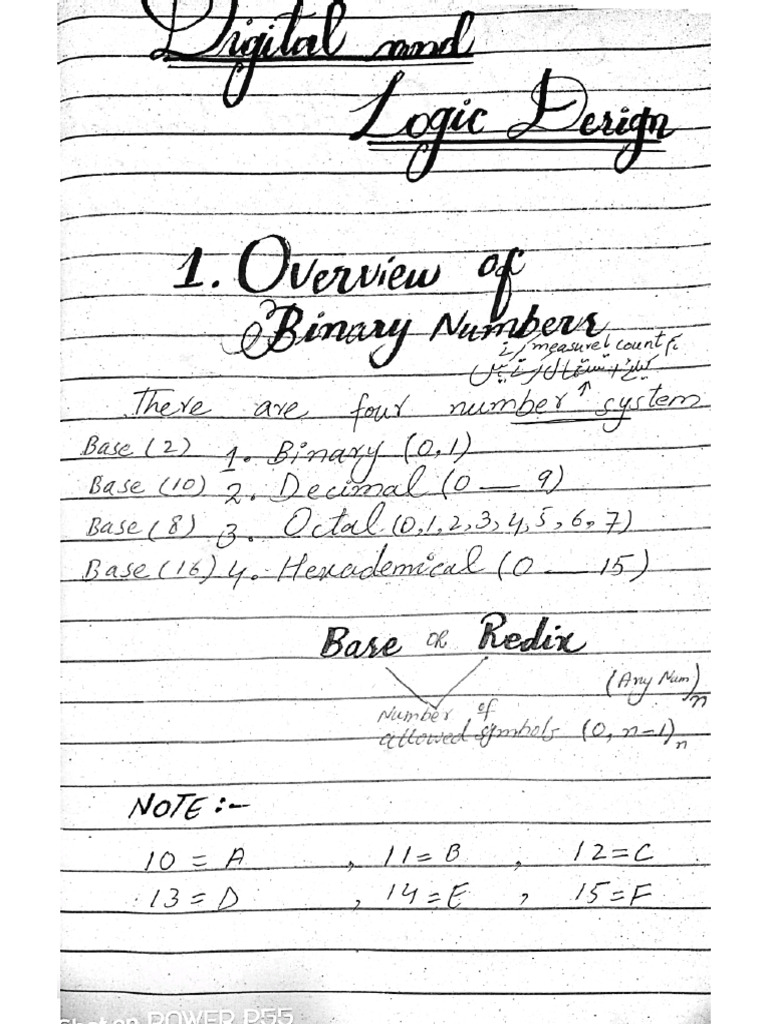 Digital and
Logic Design
1. Overview of
Binary Numbers
measure count
There are four number system
Base (2) 1. Binary (0,1)
Base (10) 2. Decimal (0 — 9)
Base (8) 3. Octal (0,1,2,3,4,5,6,7)
Base (16) 4. Hexademical (0 — 15)
Base OR Redix
(Any Num)n
Number of
allowed symbols (0, n-1)n
NOTE :-
10 = A , 11 = B , 12 = C
13 = D , 14 = E , 15 = F
Shot on POWER P55